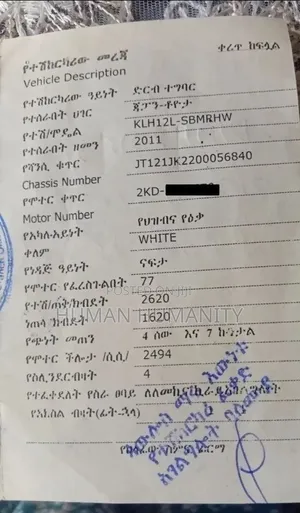 የተሽከርካሪው መረጃ
ቀረጥ ከፍሏል
Vehicle Description
የተሽከርካሪው ዓይነት ድርብ ተግባር
የተሰራበት ሀገር ጃፓን-ቶዮታ
የተሽ/ሞዴል KLH12L-SBMRHW
የተሰራበት ዘመን 2011
የሻንሲ ቁጥር JT121JK2200056840
Chassis Number
የሞተር ቁጥር 2KD-
Motor Number
የአካሉ አይነት የህዝብና የዕቃ
ቀለም WHITE
የነዳጅ ዓይነት ናፍታ
የሞተር የፈረስጉልበት 77
POSTED ON JIJI
የተሽ/ጠቅ/ክብደት 2620
HUMAN HUMANITY
ነጠላ ክብደት 1620
የጭነት መጠን 4 ሰው እና 7 ኩንታል
የሞተር ችሎታ /ሲ.ሲ/ 2494
የሲሊንደር ብዛት 4
የተፈቀደለት የስራ ፀባይ
የአክስል ብዛት(ፊት-ኋላ)